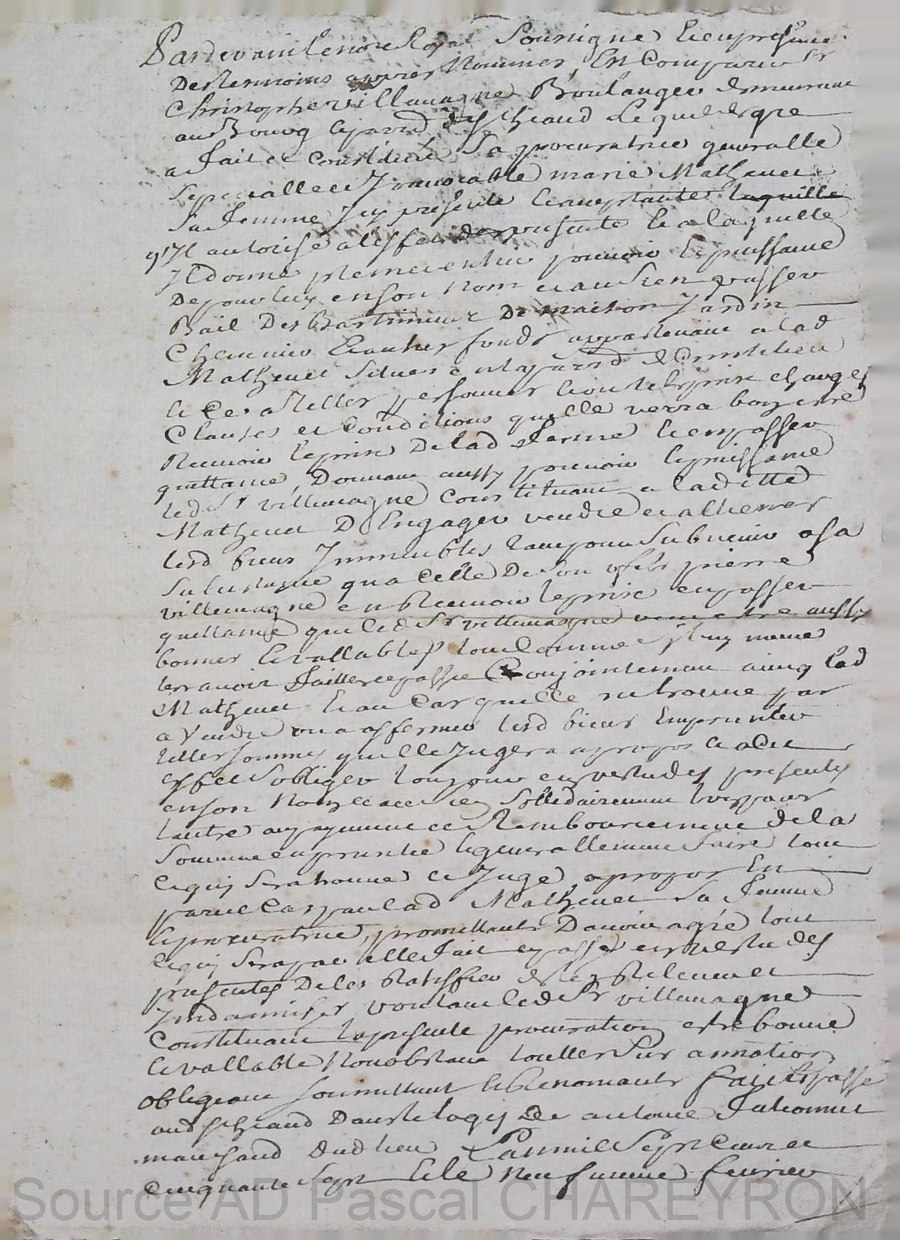 Pardevant le no.re Royal Soussigne et en presence
Des temoins apres Nommes En Comparu Sr
Christophe villemagne Boulanger demeurant
au Bourg et parr. de St heand Lequel de gre
a fait et Constitue Sa procuratrice generalle
Specialle et Irrevocable marie Mathevet
Sa femme Icy presente et acceptante laquelle
autorise a leffet des presente et a laquelle
Il donne plein et entier pouvoir et puissance
De pour luy en son Nom et au sien passer
Bail Des Bastiments De maison Jardin
Cheneviere et autres fonds appartenant a lad
Mathevet Situes en la parr. de
et Ce a telles personnes et sous tels prix charges
Clauses et Conditions quelle verra bon estre
Recevoir le prix De lad ferme et en passer
quittance, Donnant aussy pouvoir et puissance
led Sr villemagne Constituant a laditte
Mathevet D Engager vendre et alliener
lesd biens Immeubles tant pour Subvenir a sa
Subsistance qua Celle De Son fils pierre
villemagne en Recevoir le prix en passer
quittance que led Sr villemagne veut estre aussy
bonnes et vallables tout Comme Sy luy meme
les avoit faittes et passe Conjointement avecq lad
Mathevet Et au Cas quelle ne trouve pas
a Vendre ou a affermer lesd biens Emprunter
telles sommes quelle Jugera a propos et a Cet
effet Sobliger toujours en vertu des presentes
en son Nom et au sien Sollidairement lun pour
lautre au payement et Remboursement de la
Somme empruntée et generallement faire tout
ce quy Sera trouve et Juge a propos En
pareil Cas par lad Mathevet Sa femme
et procuratrice, promettant Davoir agree tout
ce quy Sera par elle fait et passe en vertu des
presentes De les Ratiffier et de len Relever et
Indamniser voulant led Sr villemagne
Constituant la presente procuration estre bonne
et vallable Nonobstant toutes Sur annation
obligeant Soumettant et Renoncants fait et passe
aud St heand Dans le logis De antoine
marchand dudt lieu Lan mil Sept Cent
Cinquante Sept Et le Neufvieme fevrier
Source AD Pascal CHAREYRON